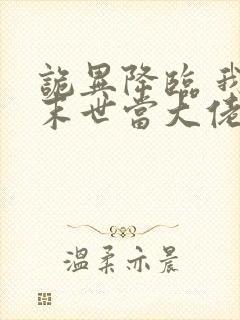 詭異降臨 我
末世當大佬
溫柔亦晨